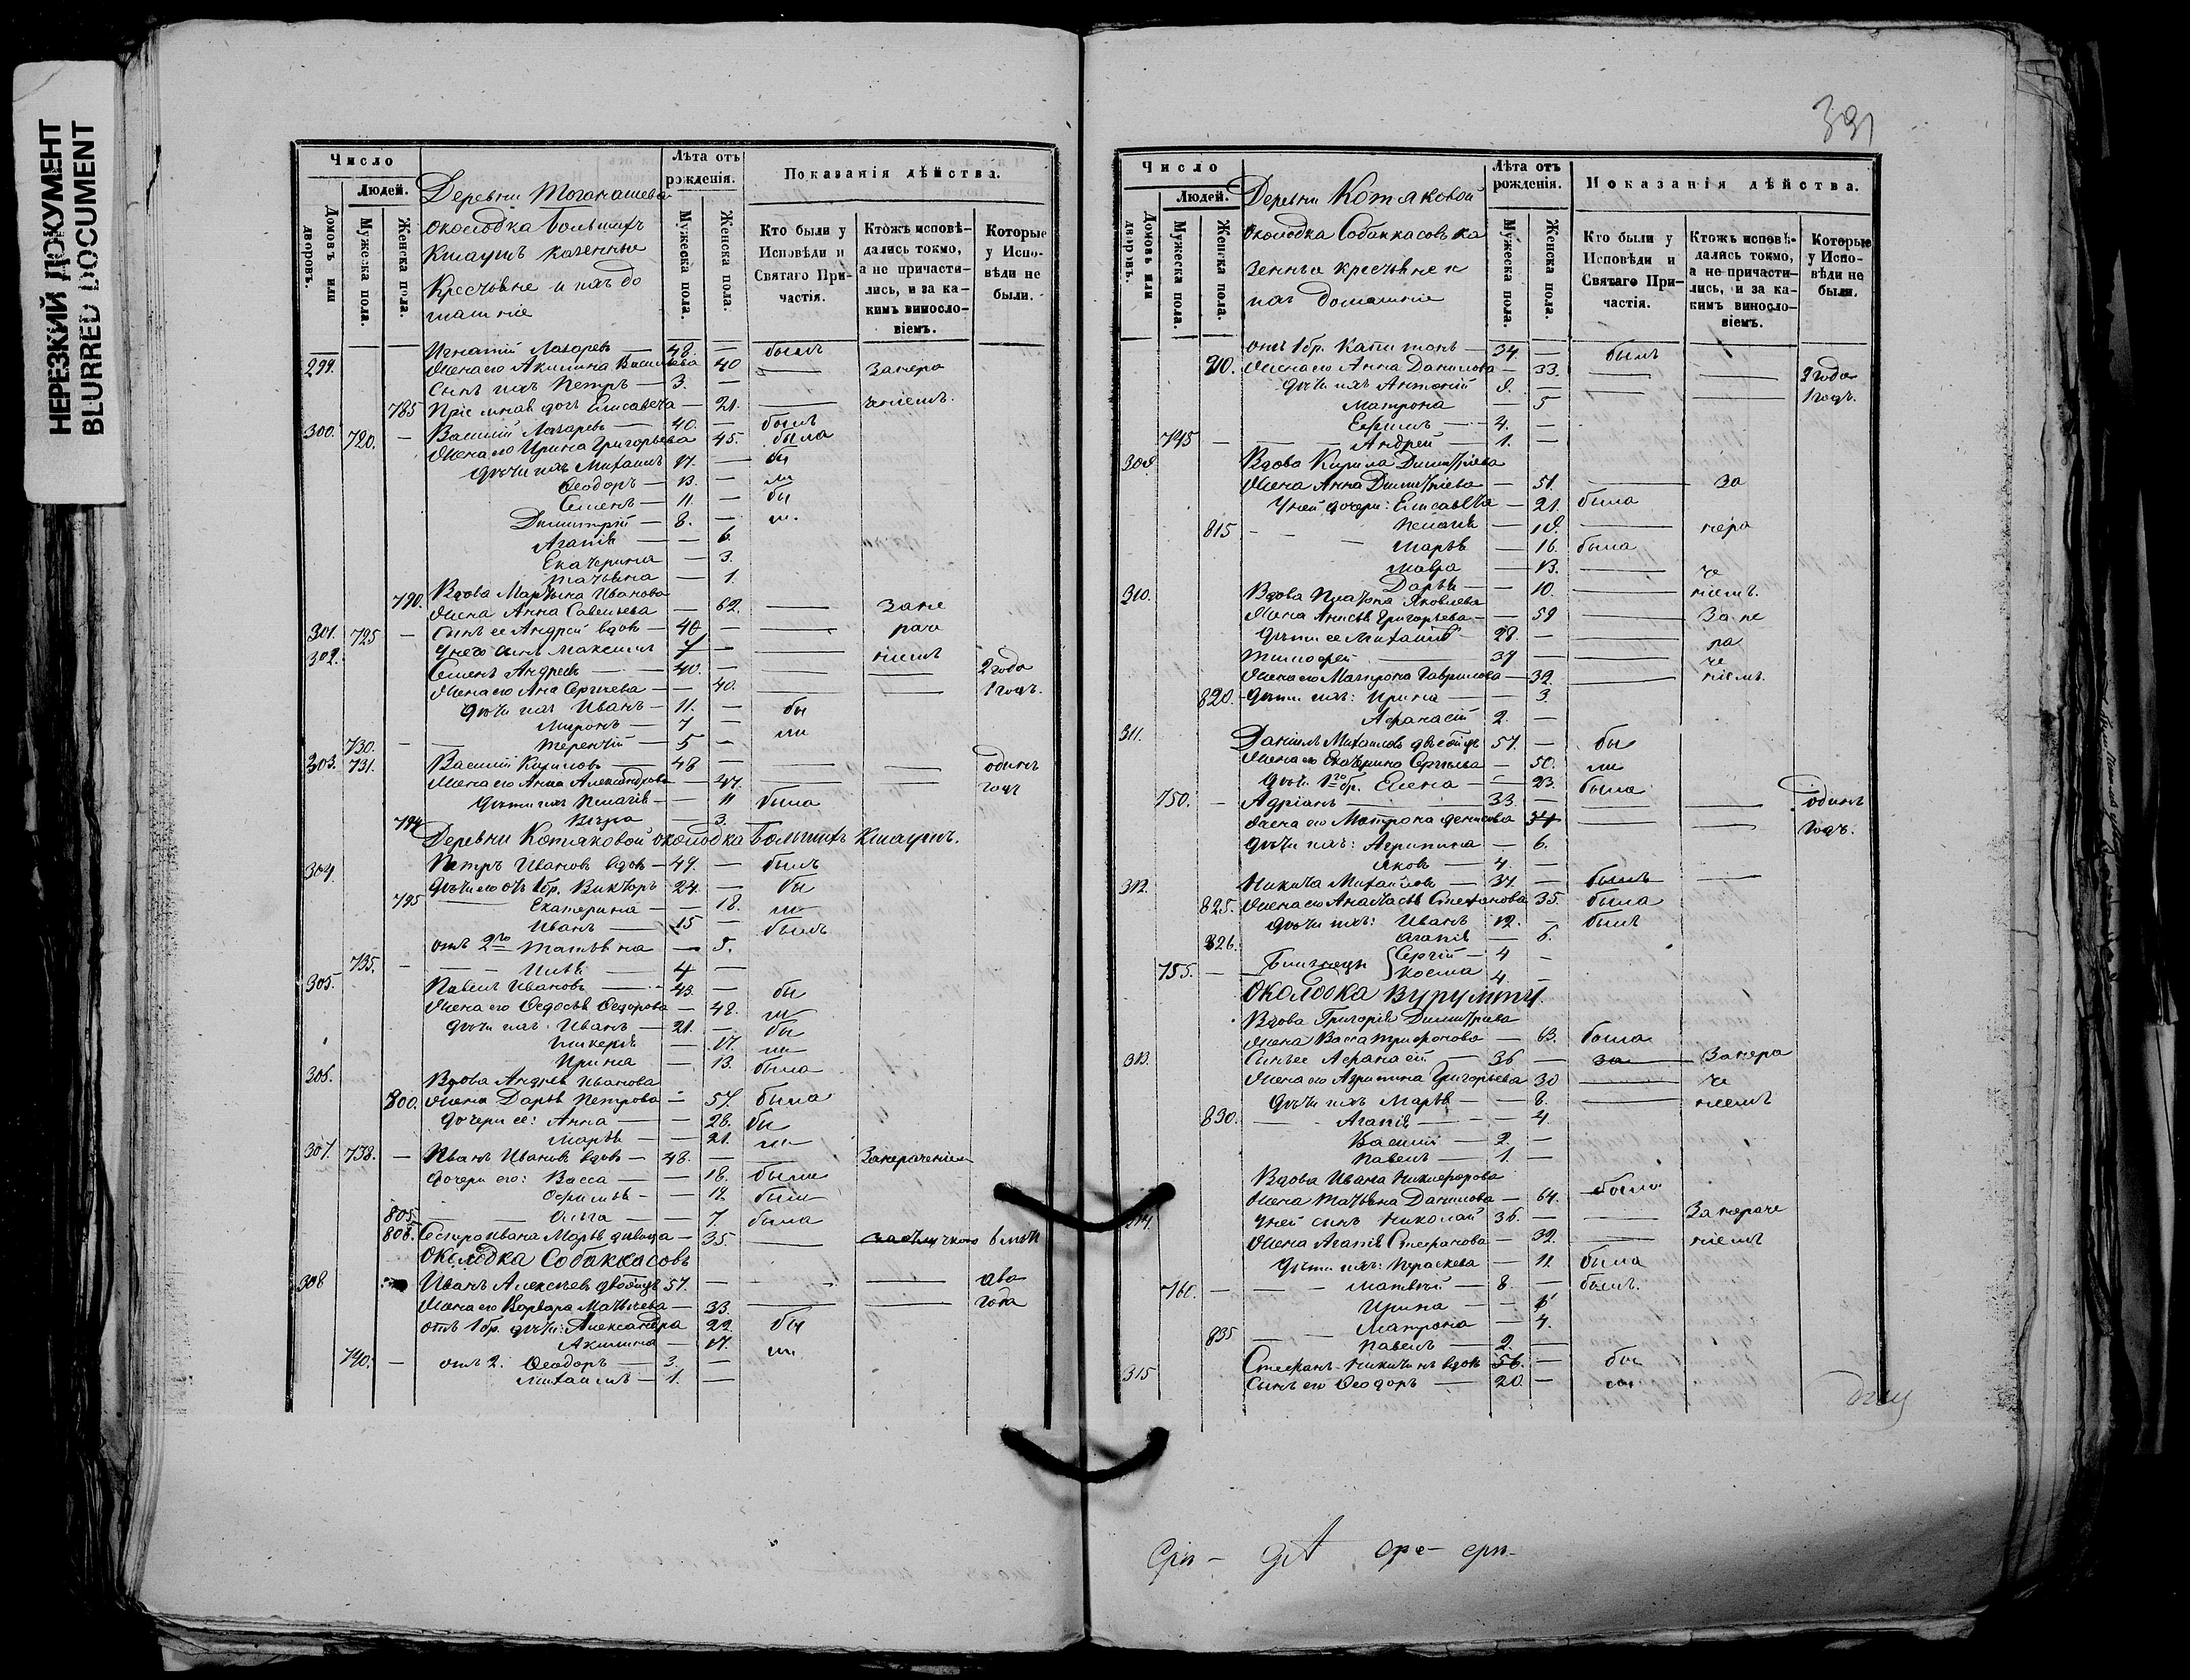 НЕРЕЗКИЙ ДОКУМЕНТ
BLURRED DOCUMENT
Число
Людей.
Домовъ или дворовъ.
Мужеска пола.
Женска пола.
Деревни Тоганашева
околодка Большихъ
Кшаушъ казенные
Крестьяне и ихъ до
машніе
Лѣта отъ рожденія.
Мужеска пола.
Женска пола.
Показанія дѣйства.
Кто были у Исповѣди и Святаго Причастія.
Ктожъ исповѣдались токмо, а не причастились, и за какимъ винословіемъ.
Которые у Исповѣди не были.
Игнатій Лазаревъ — 48. — былъ
299. Жена его Акилина Васильева 40 — занера
Сынъ ихъ Петръ — 3. —
785 дочь Елисавета — 21. — ченіемъ.
300. 720. — Василій Лазаревъ — 40. — былъ
Жена его Ирина Григорьева 45. была
Дѣти ихъ Михаилъ 17. — бы
Ѳеодоръ — 13. — ли
Семенъ — 11. — бы
Димитрій — 8. — ли.
Агапія — — 6.
Екатерина — 3.
Татьяна — 1.
Вдова Мартына Иванова
790. Жена Анна Савельева — 62. — зане
301. 725 — Сынъ ее Андрей вдовъ — 40 — — раче
У него сынъ Максимъ 7 — — ніемъ
302. Семенъ Андреевъ — 40. — — — 2 года
Жена его Анна Сергѣева — 40. — — 1 годъ.
Дѣти ихъ Иванъ — 11. — бы
Миронъ — 7 — ли
730. — — Терентій — 5 —
303. 731. Василій Кириловъ — 48 — — — одинъ
Жена его Анна Александрова — 47. — — годъ
Дѣти ихъ Пелагія — — 11 была
794 Вѣра — 3.
Деревни Котяковой околодка Большихъ Кшаушъ.
304. Петръ Ивановъ вдовъ — 49. — былъ
Дѣти его отъ 1 бр. Викторъ 24. — бы
795 Екатерина — — 18. ли
Иванъ — 15 — былъ
отъ 2го Татьяна — 5.
735. — — — 4 —
305. Павелъ Ивановъ — 43. — бы
Жена его Ѳедосья Ѳедорова — 48. ли
Дѣти ихъ Иванъ — 21. — бы
Гликерія — 17. ли
Ирина — 13. была
306. Вдова Андрея Иванова
800. Жена Дарья Петрова — 57. была
Дочери ее: Анна — — 28. бы
Марья — — 21. ли
307. 738. — Иванъ Ивановъ вдовъ — 48. — — Занераченіем
Дочери его: Васса — — 18. была
Ѳефимья — — 12 была
805. — — Анна — — 7. была
806. Сестра Ивана Марья дѣвица — 35. —
Околодка Собаккасовъ
308 Иванъ Алексѣевъ двоебр. 57. — — — два
Жена его Варвара Матвѣева — 33. — — года
отъ 1 бр. дѣти: Александра 22. бы
Акилина — 17. ли
740. — отъ 2. Ѳеодоръ — 3. —
Михаилъ — 1. —
391
Число
Людей.
Домовъ или дворовъ.
Мужеска пола.
Женска пола.
Деревни Котяковой
околодка Собаккасовъ ка
зенные крестьяне и
ихъ домашніе
Лѣта отъ рожденія.
Мужеска пола.
Женска пола.
Показанія дѣйства.
Кто были у Исповѣди и Святаго Причастія.
Ктожъ исповѣдались токмо, а не причастились, и за какимъ винословіемъ.
Которые у Исповѣди не были.
отъ 1 бр. Капитонъ — 34. — былъ
Жена его Анна Данилова — 33. — — 2 года
Дѣти ихъ Антоній — — 1 годъ.
Матрона — 5
Ефимъ — 4. —
745 — — — Андрей — 1. —
309 Вдова Кирила Димитріева
Жена Анна Димитріева — 51. — за
У ней дочери: Елисавета — 21. была
815 — Пелагія — — нера
Марья — 16. была
Мавра — 13. — че
Дарья — 10. — ніемъ.
310. Вдова Платона Яковлева
Жена Анисья Григорьева — 59 — За не
Дѣти ее Михаилъ 28. — — ра
Тимофей — 37 — — че
Жена его Матрона Гаврилова — 32. — ніемъ.
820. Дѣти ихъ: Ирина — — 3.
Афанасій 2. —
311. Даніилъ Михаиловъ 57. — бы
Жена его Екатерина Сергѣева — 50. ли
Дѣти 1го бр. Елена — 23. была
750. — Адріанъ — 33. — — — Одинъ
Жена его Матрона Денисова 37 — — годъ.
Дѣти ихъ: Агрипина — 6.
Яковъ — 4. —
312. Никита Михаиловъ — 37 — былъ —
825. Жена его Анастасья Стефанова 35. была
Дѣти ихъ: Иванъ 12. — былъ
826. Агапія — 6.
755. — — Близнецы Сергій — 4 —
Косма 4. —
Околодка Вурумпу.
Вдова Григорія Димитріева
Жена Васса Трифонова — 63. была
313. Сынъ ее Афанасій — 36 — за — Занера
Жена его Агрипина Григорьева 30 — че
Дѣти ихъ Марья — — 8. — ніемъ
830. — — Агапія — — 4.
Василій — 2. —
Павелъ — 1. —
Вдова Ивана Никифорова
Жена Татьяна Данилова — 64. была
314. У ней сынъ Николай 36. — — Занераче
Жена Агапія Стефанова — 32. — ніемъ
Дѣти ихъ: Параскева — 11. была
760. — — — Матвѣй — 8. — былъ.
Ирина — —
835 — — Матрона — 4.
Павелъ — 2. —
315 Стефанъ Никитинъ вдовъ 56. — бы
Сынъ его Ѳеодоръ — 20. — ли